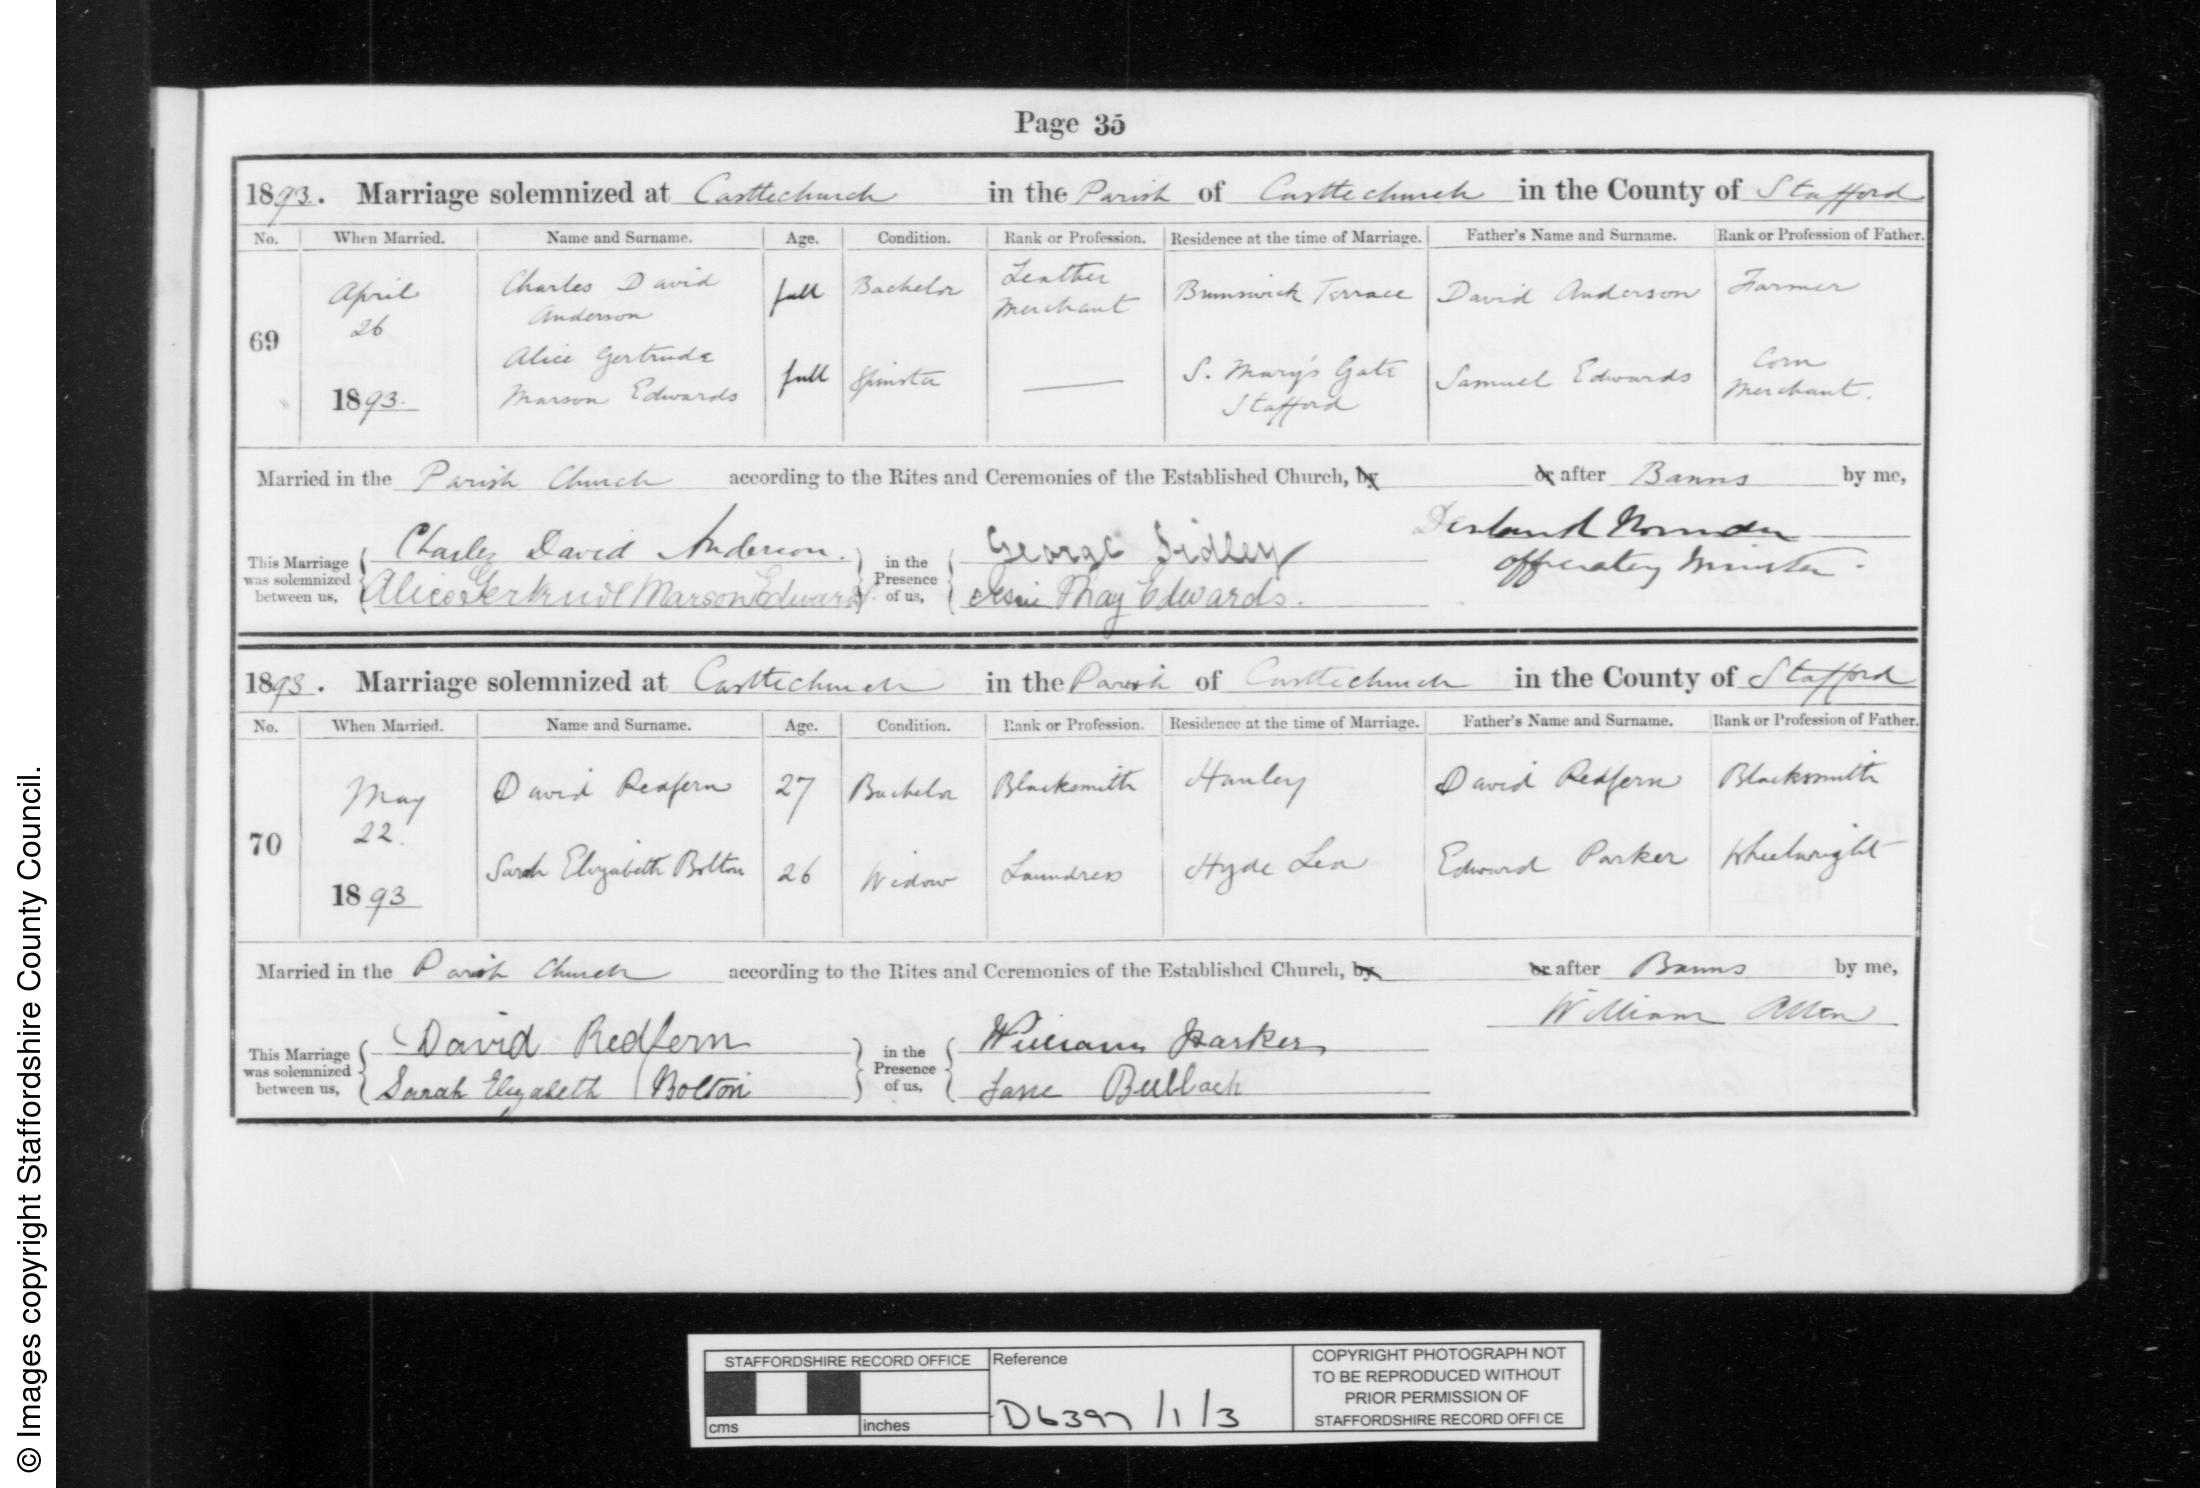 Page 35
1893. Marriage solemnized at Castlechurch in the Parish of Castlechurch in the County of Stafford
No. When Married. Name and Surname. Age. Condition. Rank or Profession. Residence at the time of Marriage. Father's Name and Surname. Rank or Profession of Father.
69 April 26 1893. Charles David Anderson full Bachelor Leather Merchant Brunswick Terrace David Anderson Farmer
Alice Gertrude Marson Edwards full Spinster — S. Mary's Gate Stafford Samuel Edwards Corn Merchant.
Married in the Parish Church according to the Rites and Ceremonies of the Established Church, by or after Banns by me,
This Marriage was solemnized between us, Charles David Anderson. in the Presence of us, George Sidley
Alice Gertrude Marson Edwards. Jessie May Edwards.
officiating Minister.
1893. Marriage solemnized at Castlechurch in the Parish of Castlechurch in the County of Stafford
No. When Married. Name and Surname. Age. Condition. Rank or Profession. Residence at the time of Marriage. Father's Name and Surname. Rank or Profession of Father.
70 May 22. 1893 David Redfern 27 Bachelor Blacksmith Hanley David Redfern Blacksmith
Sarah Elizabeth Bolton 26 Widow Laundress Hyde Lea Edward Parker Wheelwright
Married in the Parish Church according to the Rites and Ceremonies of the Established Church, by or after Banns by me,
William Allen
This Marriage was solemnized between us, David Redfern in the Presence of us, William Parker
Sarah Elizabeth Bolton Jane Bullock
© Images copyright Staffordshire County Council.
STAFFORDSHIRE RECORD OFFICE
cms inches
Reference
D6397/1/3
COPYRIGHT PHOTOGRAPH NOT
TO BE REPRODUCED WITHOUT
PRIOR PERMISSION OF
STAFFORDSHIRE RECORD OFFICE